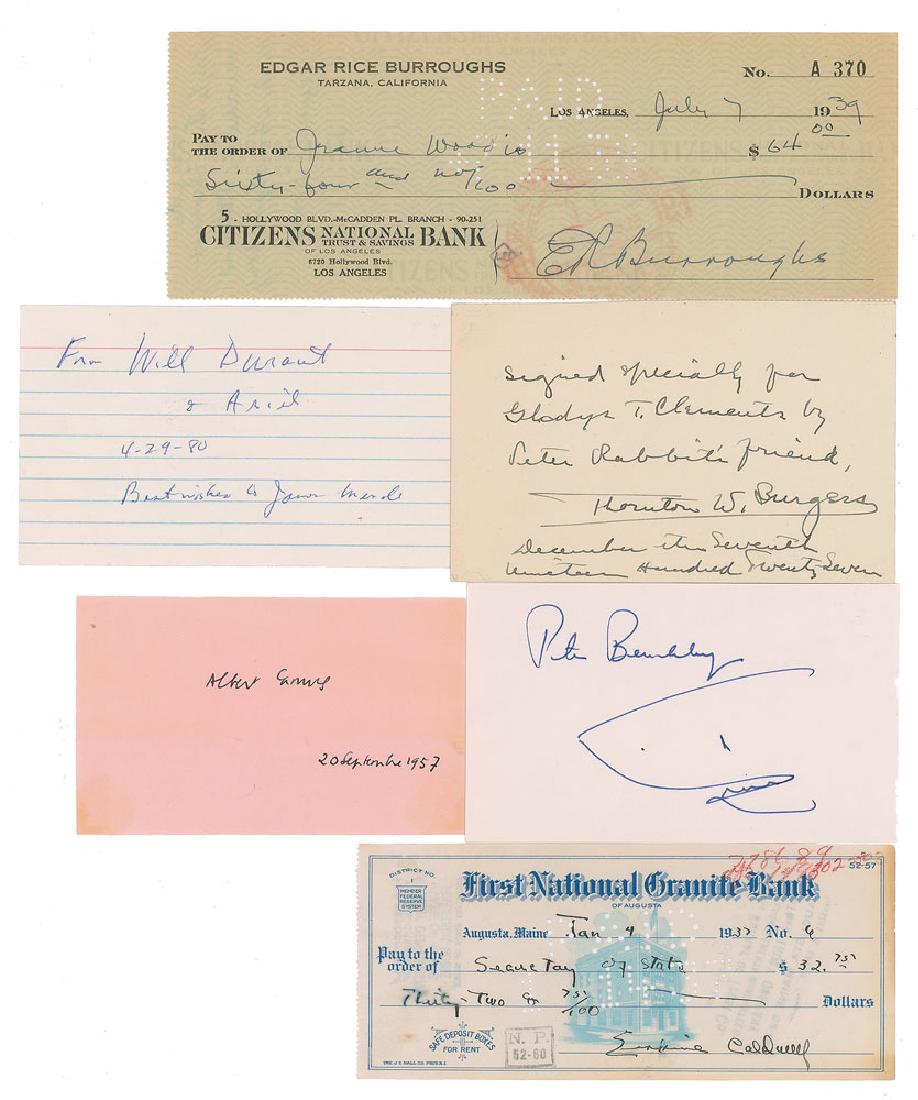 EDGAR RICE BURROUGHS
TARZANA, CALIFORNIA
No. A 370
PAID
LOS ANGELES, July 7 1939
PAY TO
THE ORDER OF Joanne Woodis $ 64 00
Sixty-four and no/100 DOLLARS
5 - HOLLYWOOD BLVD.-McCADDEN PL. BRANCH - 90-251
CITIZENS NATIONAL TRUST & SAVINGS BANK
OF LOS ANGELES
6720 Hollywood Blvd.
LOS ANGELES
E R Burroughs
From Will Durant
& Ariel
4-29-80
Best wishes to
signed specially for
Gladys T. Clements by
Peter Rabbit's friend,
Thornton W. Burgess
December the Seventh
Nineteen Hundred Twenty Seven
Albert Camus
20 Septembre 1957
Peter Benchley
52-57
DISTRICT NO. 1
MEMBER
FEDERAL
RESERVE
SYSTEM
First National Granite Bank
OF AUGUSTA
Augusta, Maine Jan 4 193 No. 6
Pay to the
order of Secretary of State $ 32.75
Thirty-Two & 75/100 Dollars
SAFE DEPOSIT BOXES
FOR RENT
N. P.
52-60
Erskine Caldwell